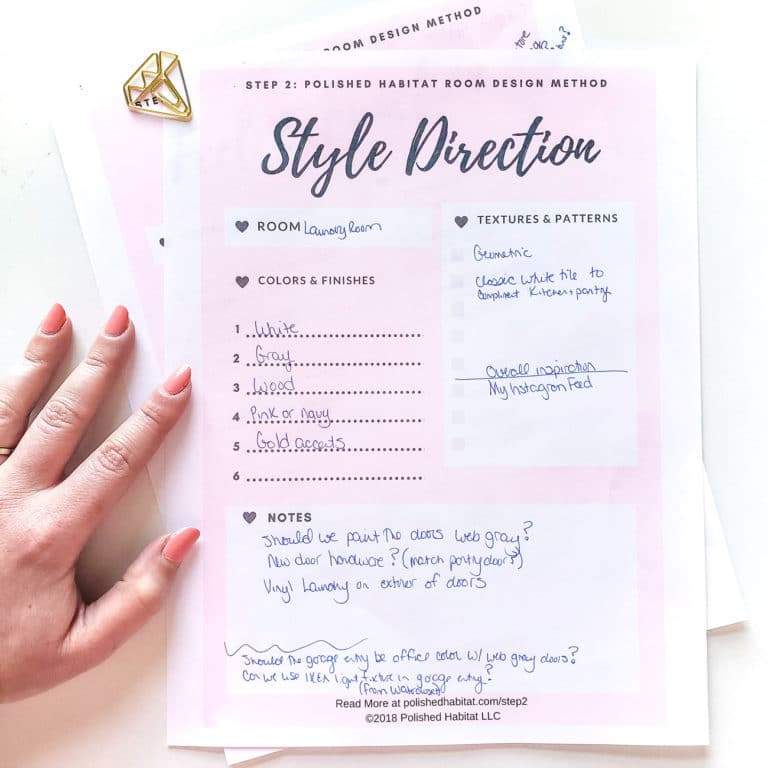 ROOM DESIGN METHOD
STE
STEP 2: POLISHED HABITAT ROOM DESIGN METHOD
Style Direction
ROOM Laundry Room
COLORS & FINISHES
1 White
2 Gray
3 Wood
4 Pink or navy
5 Gold accents
6
TEXTURES & PATTERNS
Geometric
Classic white tile to
compliment Kitchen + pantry
Overall inspiration
My Instagram Feed
NOTES
Should we paint the doors web gray?
New door hardware? (match pantry door?)
Vinyl Laundry on exterior of doors
Should the garage entry be office color w/ web gray doors?
Can we use IKEA light fixture in garage entry?
(from
Read More at polishedhabitat.com/step2
©2018 Polished Habitat LLC